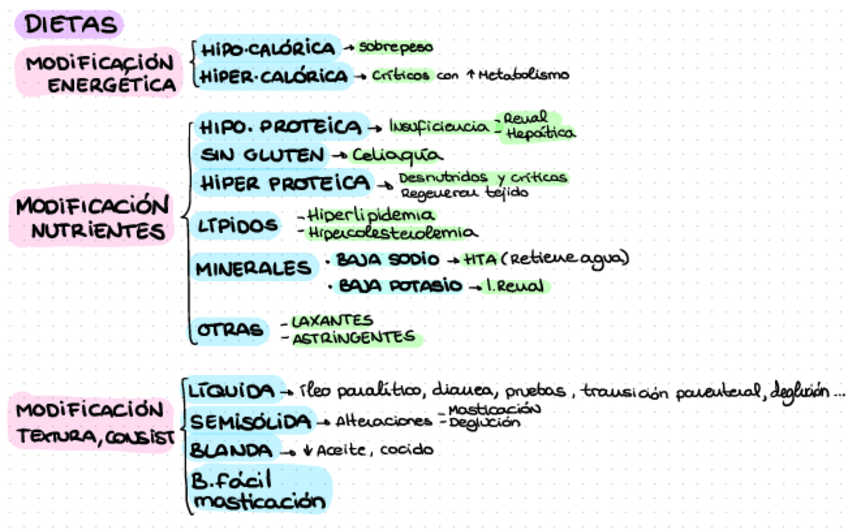 DIETAS
MODIFICACIÓN ENERGÉTICA
HIPO·CALÓRICA → sobrepeso
HIPER·CALÓRICA → Críticos con ↑ Metabolismo
MODIFICACIÓN NUTRIENTES
HIPO. PROTEICA → Insuficiencia - Renal
- Hepática
SIN GLUTEN → Celiaquía
HIPER PROTEICA → Desnutridos y críticos
Regeneren tejido
LÍPIDOS - Hiperlipidemia
- Hipercolesterolemia
MINERALES · BAJA SODIO → HTA (Retiene agua)
· BAJA POTASIO → I. Renal
OTRAS - LAXANTES
- ASTRINGENTES
MODIFICACIÓN TEXTURA, CONSIST
LÍQUIDA → íleo paralítico, diarrea, pruebas, transición parenteral, deglución...
SEMISÓLIDA → Alteraciones - Masticación
- Deglución
BLANDA → ↓ Aceite, cocido
B. fácil
masticación